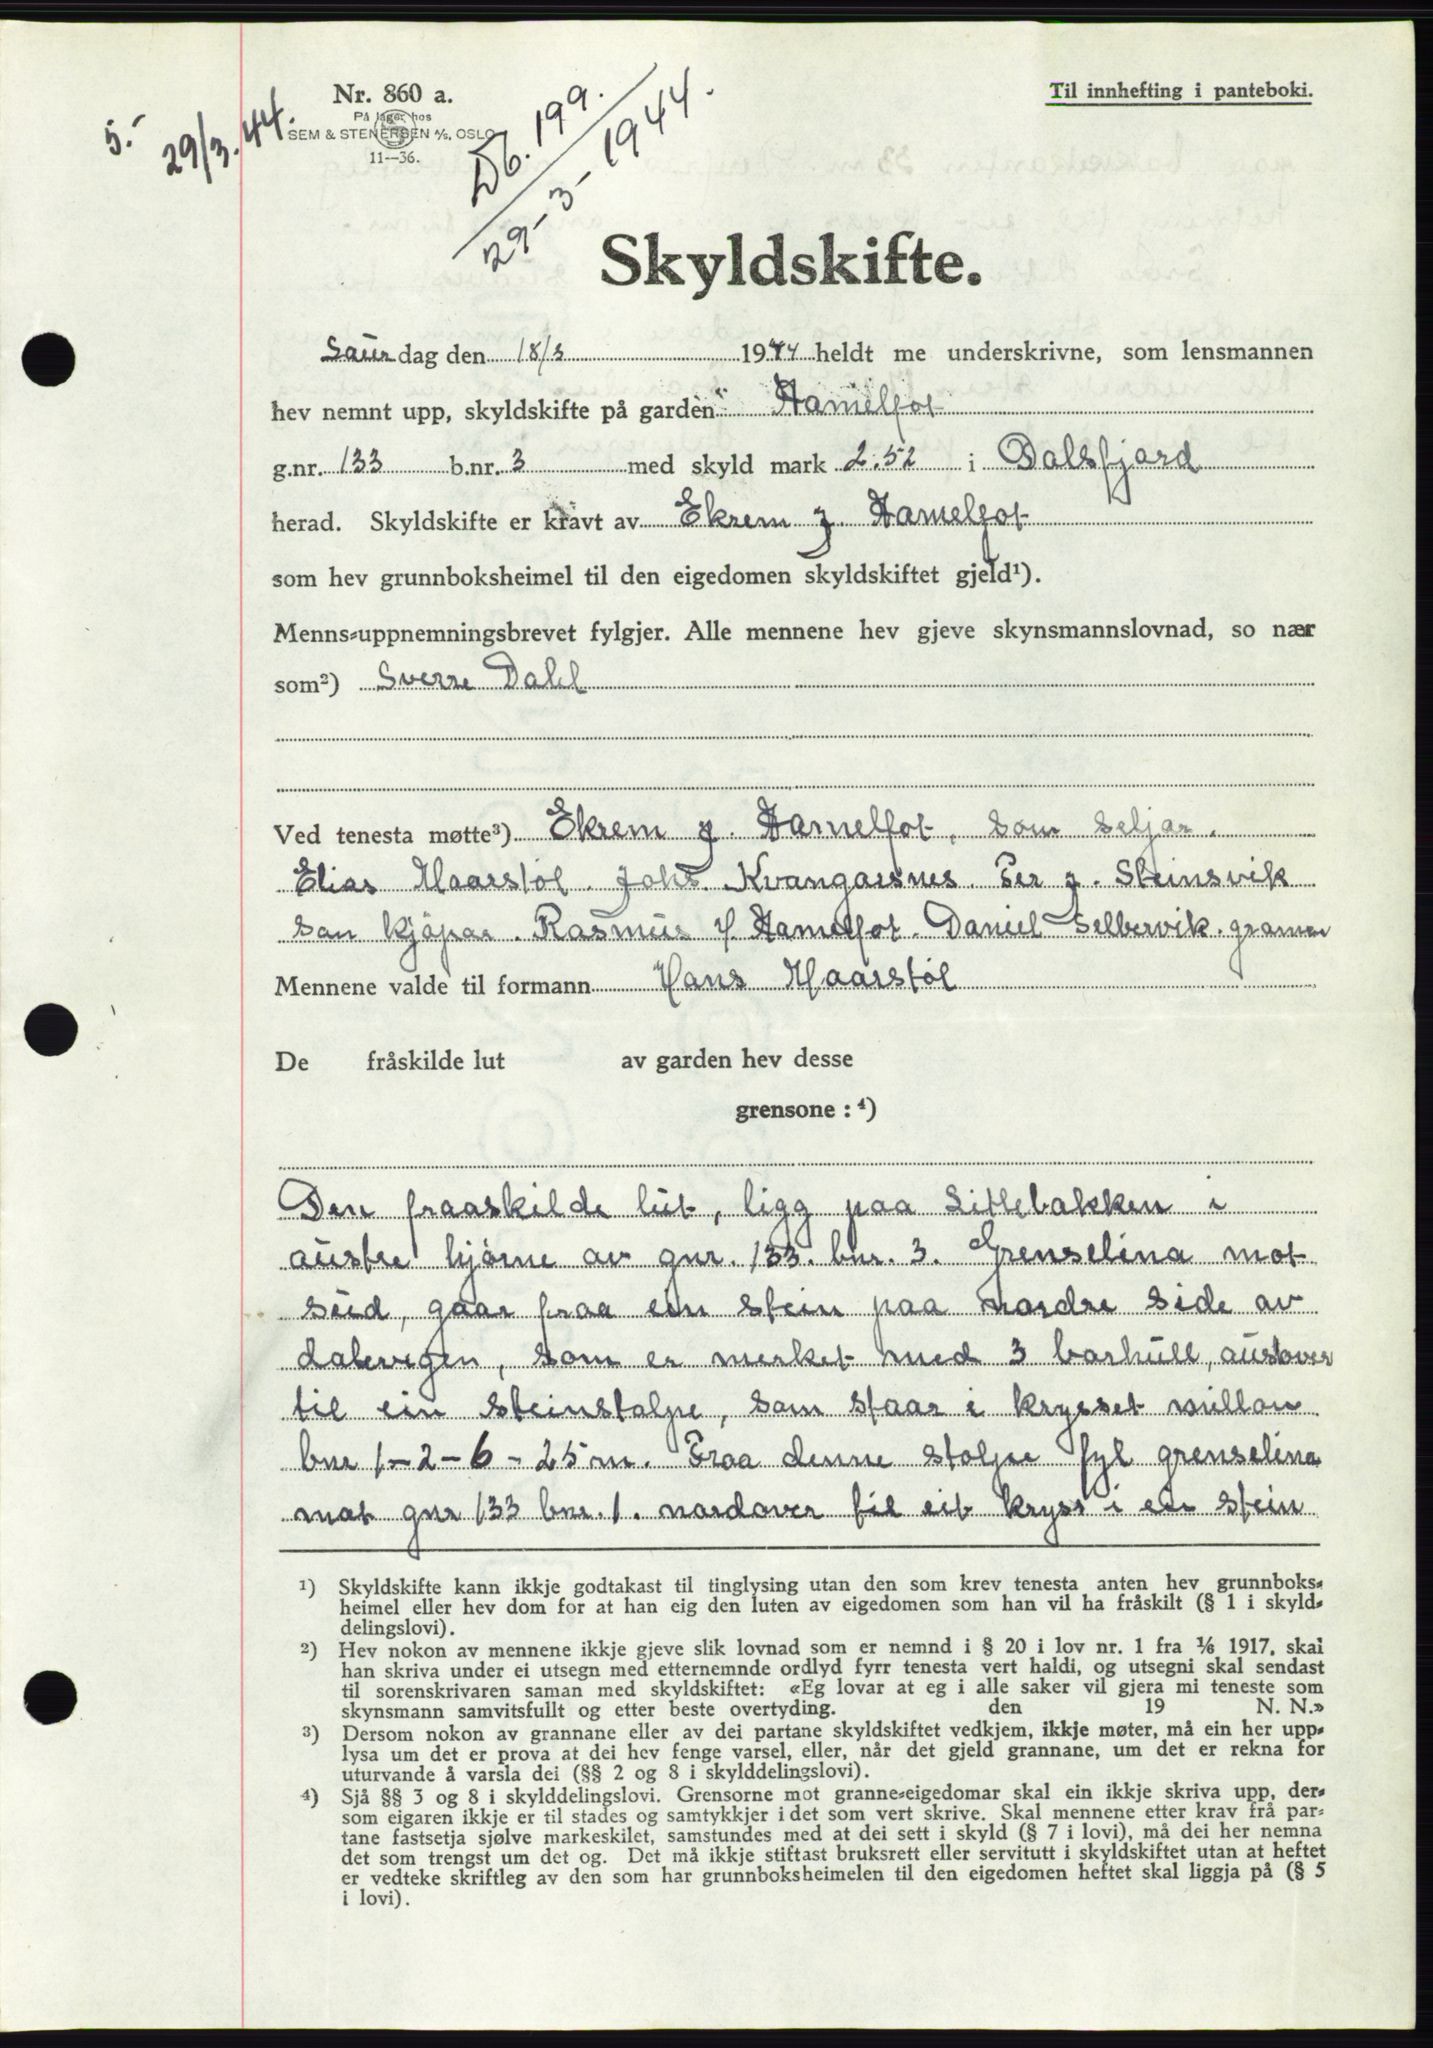 Nr. 860 a.
På lager hos
SEM & STENERSEN A/S, OSLO
11—36.
5.-
29/3. 44.
Db. 199.
29-3-1944.
Til innhefting i panteboki.
Skyldskifte.
Laur dag den 18/3 1944 heldt me underskrivne, som lensmannen
hev nemnt upp, skyldskifte på garden Hamelfot
g.nr. 133 b.nr. 3 med skyld mark 2.52 i Dalsfjord
herad. Skyldskifte er kravt av Ekrem J. Hamelfot
som hev grunnboksheimel til den eigedomen skyldskiftet gjeld¹).
Menns-uppnemningsbrevet fylgjer. Alle mennene hev gjeve skynsmannslovnad, so nær
som²) Sverre Dahl
Ved tenesta møtte³) Ekrem J. Hamelfot, som seljar.
Elias Maarstøl. Johs. Kvangarsnes. Per J. Steinsvik
som kjøpar. Rasmus H. Hamelfot. Daniel Selbervik. granar
Mennene valde til formann Hans Maarstøl
De fråskilde lut av garden hev desse
grensone : ⁴)
Den fraaskilde lut, ligg paa Litlebakken i
austre hjørne av gnr. 133. bnr. 3. Grenselina mot
süd, gaar fraa ein stein paa nordre side av
dalevegen, som er merket med 3 borhull, austover
til ein steinstolpe, som staar i krysset millom
bnr 1-2-6-25 m. Fraa denne stolpe fyl grenselina
mot gnr 133 bnr. 1. nordover til eit kryss i ein stein
¹) Skyldskifte kann ikkje godtakast til tinglysing utan den som krev tenesta anten hev grunnboks-
heimel eller hev dom for at han eig den luten av eigedomen som han vil ha fråskilt (§ 1 i skyld-
delingslovi).
²) Hev nokon av mennene ikkje gjeve slik lovnad som er nemnd i § 20 i lov nr. 1 fra 1/6 1917, skal
han skriva under ei utsegn med etternemnde ordlyd fyrr tenesta vert haldi, og utsegni skal sendast
til sorenskrivaren saman med skyldskiftet: «Eg lovar at eg i alle saker vil gjera mi teneste som
skynsmann samvitsfullt og etter beste overtyding. den 19 N. N.»
³) Dersom nokon av grannane eller av dei partane skyldskiftet vedkjem, ikkje møter, må ein her upp-
lysa um det er prova at dei hev fenge varsel, eller, når det gjeld grannane, um det er rekna for
uturvande å varsla dei (§§ 2 og 8 i skylddelingslovi).
⁴) Sjå §§ 3 og 8 i skylddelingslovi. Grensorne mot granne-eigedomar skal ein ikkje skriva upp, der-
som eigaren ikkje er til stades og samtykkjer i det som vert skrive. Skal mennene etter krav frå par-
tane fastsetja sjølve markeskilet, samstundes med at dei sett i skyld (§ 7 i lovi), må dei her nemna
det som trengst um det og. Det må ikkje stiftast bruksrett eller servitutt i skyldskiftet utan at heftet
er vedteke skriftleg av den som har grunnboksheimelen til den eigedomen heftet skal liggja på (§ 5
i lovi).